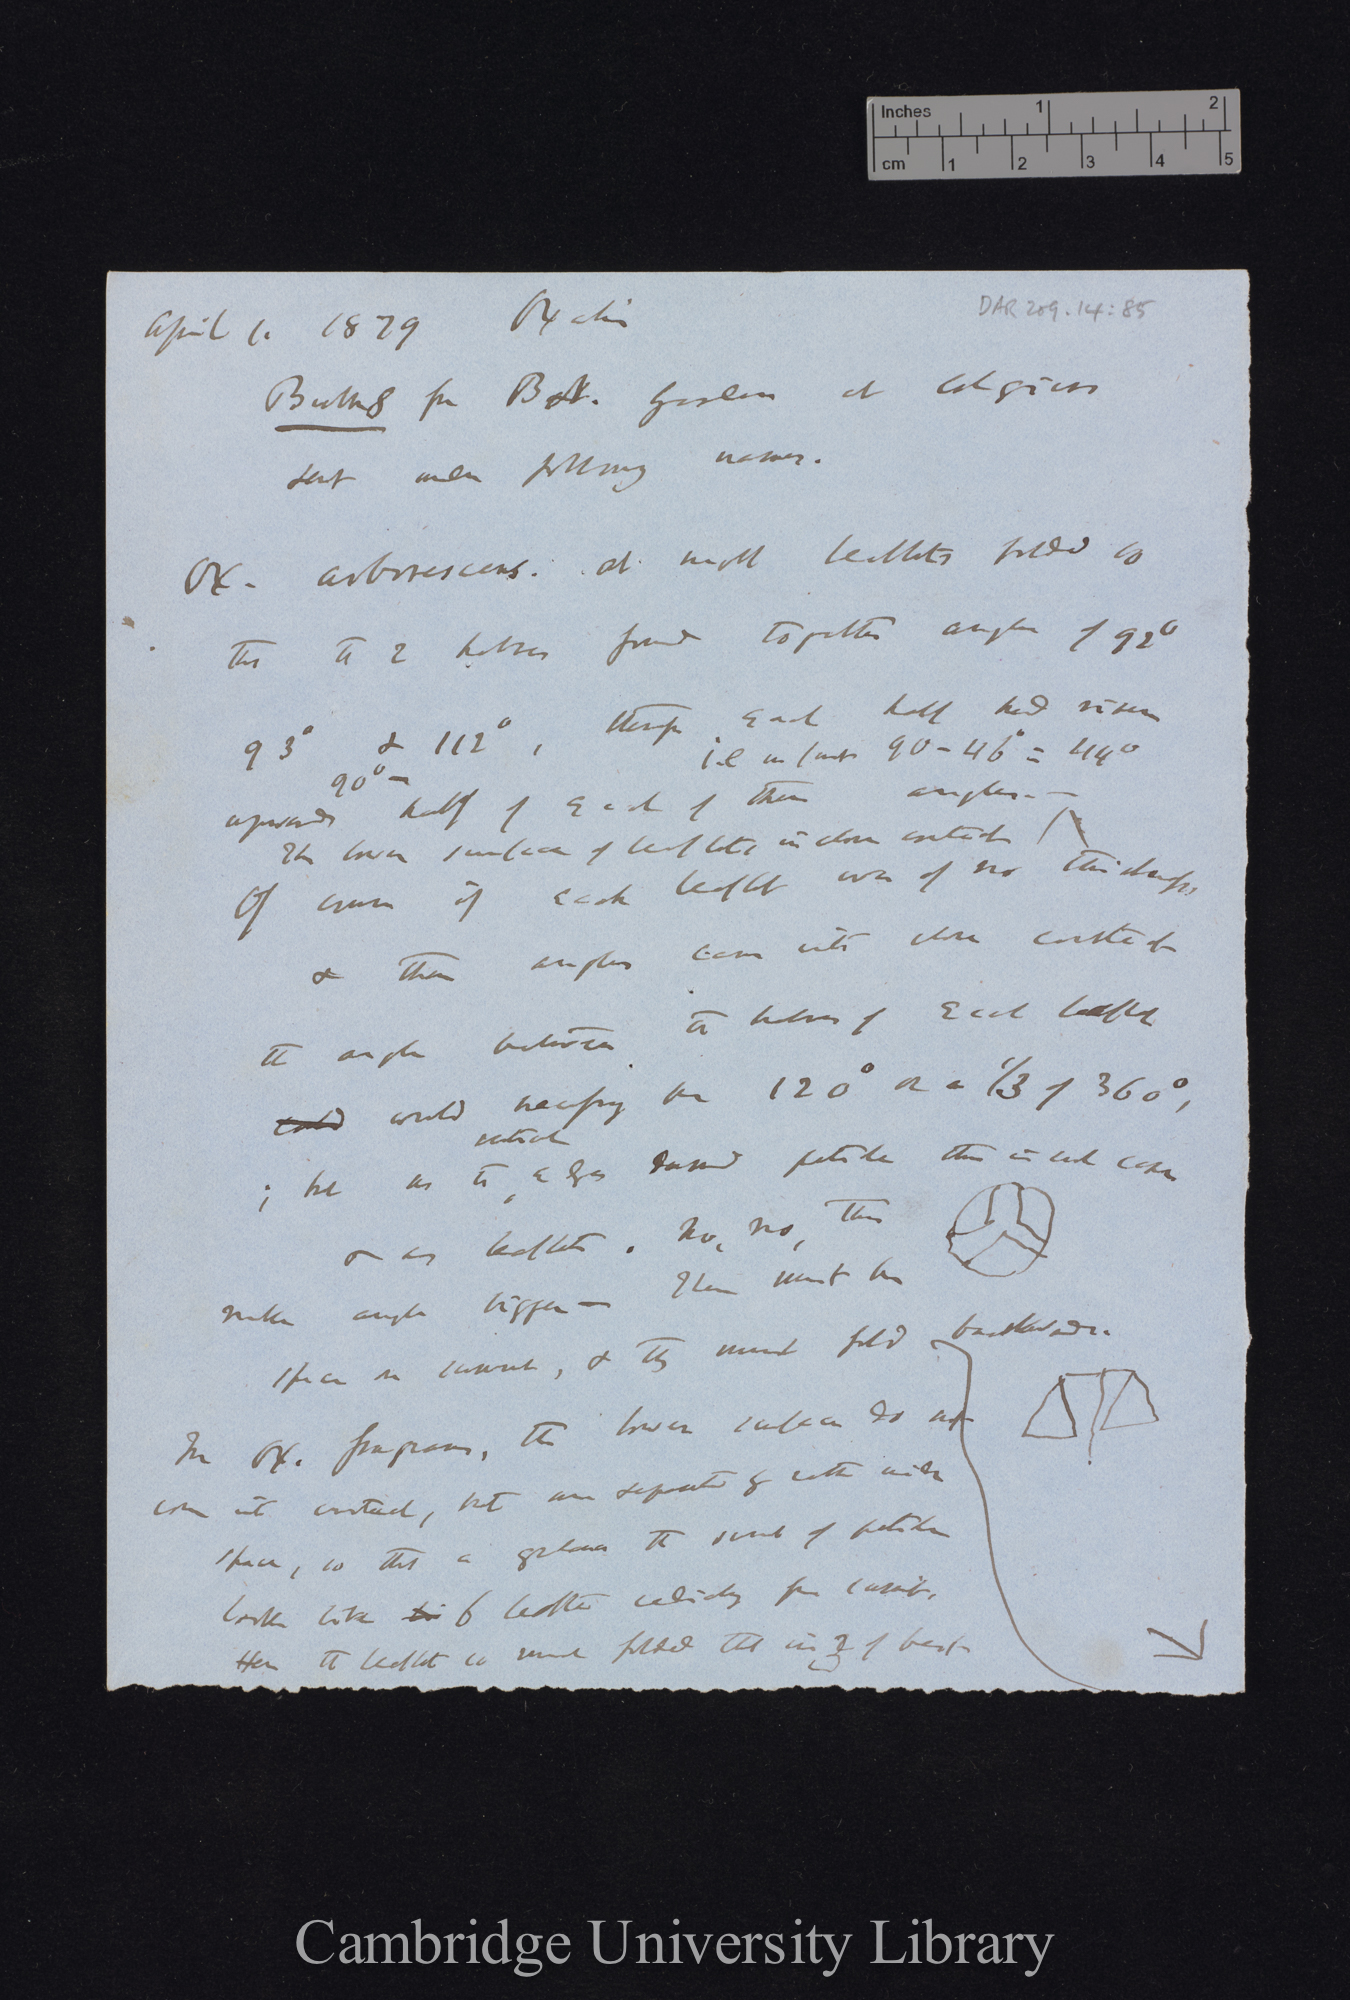 Inches 1 2
cm 1 2 3 4 5
DAR 209.14:85
April 1. 1879 Oxalis
from Bot. Garden at
sent under following names.
Ox. arborescens. at night leaflets folded so
that the 2 halves found together angles of 92°
93° & 112°, though each half had risen
i.e. 90 - 46° = 44°
90° –
upwards half of each of these angles. —
The lower surface of leaflets in close contact
Of course if each leaflet was of no thickness
& these angles came into close contact
the angle between the halves of each leaflet
could would necessarily be 120° or a 1/3 of 360°,
; but as the edges round petiole this is not case
leaflets. No, no, this
makes angle bigger — There must be
space in centre, & they must fold backwards.
In Ox. fragrans, the lower surfaces do not
come into contact, but are separated by rather wide
space, so that a the summit of petiole
looks like 6 leaflets radiating from centre.
the leaflet is much folded that
Cambridge University Library